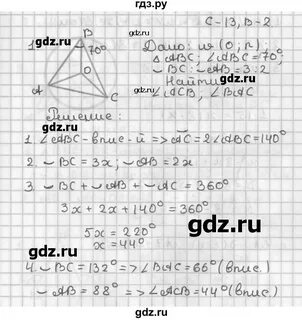 гдз.ру
С-13, В-2
B
1.
70°
O
A
C
Дано: ω (O; r)
△ABC; ∠ABC=70°;
◡BC:◡AB=3:2
Найти:
∠ACB, ∠BAC
Решение:
1. ∠ABC-впис-й => ◡AC=2∠ABC=140°
2. ◡BC=3x; ◡AB=2x
3. ◡BC+◡AB+◡AC=360°
3x+2x+140°=360°
5x=220°
x=44°
4. ◡BC=132° => ∠BAC=66° (впис.)
◡AB=88° => ∠ACB=44° (впис.)
gdz.ru
gdz.ru
gdz.ru
gdz.ru
gdz.ru
gdz.ru